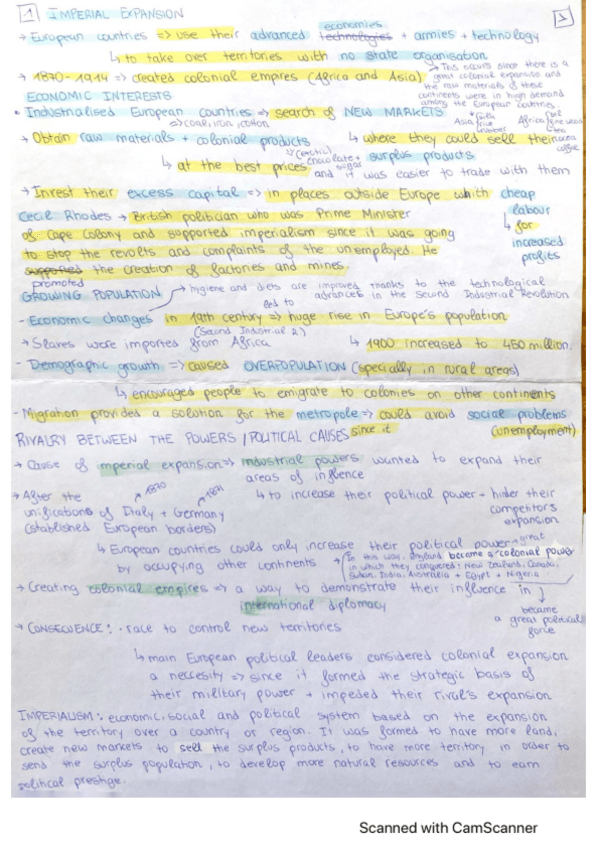 1 IMPERIAL EXPANSION
1
economies
→ European countries => use their advanced technologies + armies + technology
↳ to take over territories with no state organisation
→ 1870-1914 => created colonial empires (Africa and Asia)
→ This occurs since there is a
great colonial expansion and
the raw materials of these
continents were in high demand
among the European countries.
ECONOMIC INTERESTS
• Industrialised European countries => search of NEW MARKETS
=> coal, iron, cotton
Asia
Africa
→ Obtain raw materials + colonial products
↳ where they could sell their
surplus products
↳ at the best prices
chocolate +
sugar
and it was easier to trade with them
→ Invest their excess capital => in places outside Europe which cheap
labour
↳ for
increased
profits
Cecil Rhodes → British politician who was Prime Minister
of Cape Colony and supported imperialism since it was going
to stop the revolts and complaints of the unemployed. He
supported the creation of factories and mines.
promoted
GROWING POPULATION
→ hygiene and diets are improved thanks to the technological
advances in the Second Industrial Revolution
led to
- Economic changes in 19th century => huge rise in Europe's population
(Second Industrial 2)
→ Slaves were imported from Africa
↳ 1900 increased to 450 million.
- Demographic growth => caused OVERPOPULATION (specially in rural areas)
↳ encouraged people to emigrate to colonies on other continents
- Migration provided a solution for the metropole => could avoid social problems
since it
(unemployment)
RIVALRY BETWEEN THE POWERS / POLITICAL CAUSES
→ Cause of imperial expansion => industrial powers wanted to expand their
areas of influence
→ After the
1870
1871
unifications of Italy + Germany
(established European borders)
↳ to increase their political power + hinder their
competitors
expansion
↳ European countries could only increase their political power
by occupying other continents
great
→ In this way, England became a colonial power
in which they conquered: New Zealand, Canada,
Sudan, India, Australia + Egypt + Nigeria
→ Creating colonial empires => a way to demonstrate their influence in
international diplomacy
became
a great political
force
→ CONSECUENCE: · race to control new territories
↳ main European political leaders considered colonial expansion
a neccesity => since it formed the strategic basis of
their military power + impeded their rival's expansion
IMPERIALISM: economic, social and political system based on the expansion
of the territory over a country or region. It was formed to have more land,
create new markets to sell the surplus products, to have more territory in order to
send the surplus population, to develop more natural resources and to earn
political prestige.
Scanned with CamScanner